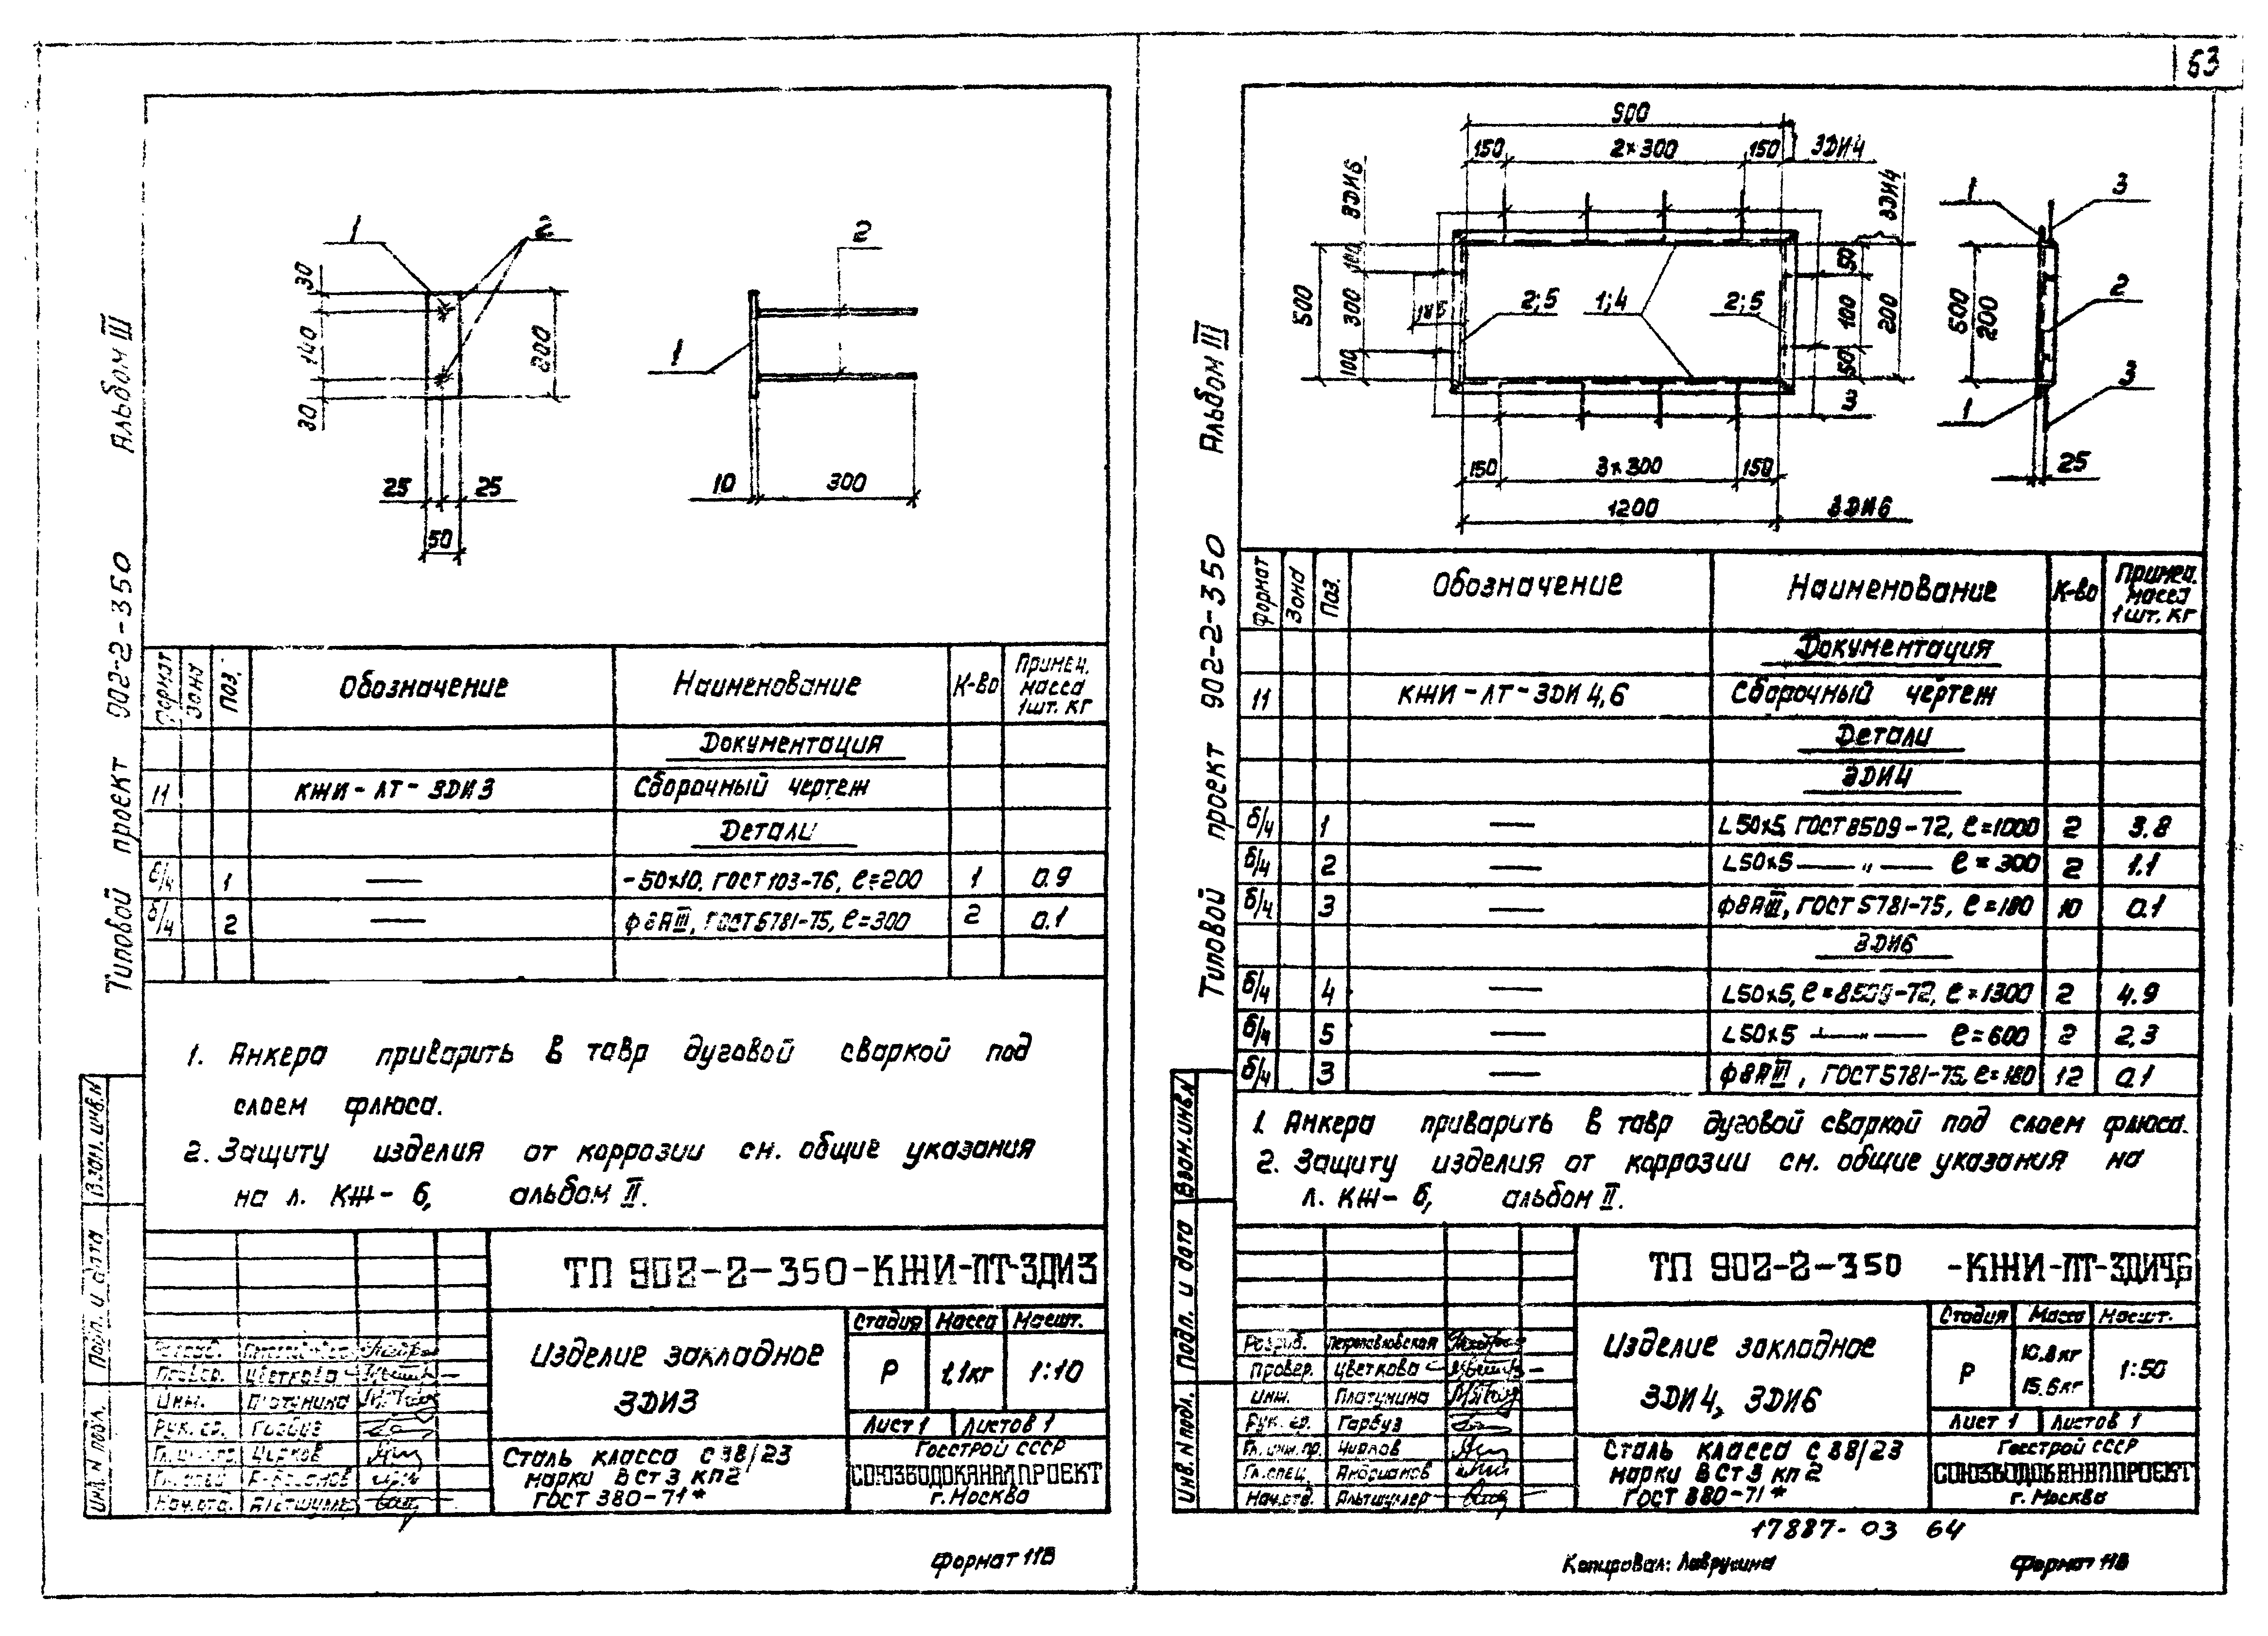 63
Типовой проект 902-2-350 Альбом III
1
2
30
140
30
200
25
25
50
2
1
10
300
Формат
Зона
Поз.
Обозначение
Наименование
К-во
Примеч. масса 1шт. кг
Документация
11
КЖИ-ЛТ-ЗДИ3
Сборочный чертеж
Детали
б/ч 1 — -50×10, ГОСТ 103-76, ℓ=200 1 0.9
б/ч 2 — ф8АIII, ГОСТ5781-75, ℓ=300 2 0.1
1. Анкера приварить в тавр дуговой сваркой под
слоем флюса.
2. Защиту изделия от коррозии см. общие указания
на л. КЖ-6, альбом II.
Взам. инв. N
Подп. и дата
Инв. N подл.
ТП 902-2-350-КЖИ-ЛТ-ЗДИ3
Изделие закладное
ЗДИ3
Стадия
Масса
Масшт.
Р
1,1кг
1:10
Лист 1
Листов 1
Провер. Цветкова
Инж. Платунина
Рук. гр. Гарбуз
Нач.отд. Альтшулер
Сталь класса С38/23
марки ВСт3 кп2
ГОСТ 380-71*
Госстрой СССР
СОЮЗВОДОКАНАЛПРОЕКТ
г. Москва
Формат 11В
Типовой проект 902-2-350 Альбом III
900
150
2×300
150
ЗДИ4
ЗДИ6
ЗДИ4
500
100
300
100
185
2;5
1;4
2;5
50
100
50
200
3
150
3×300
150
1200
ЗДИ6
1
3
500
200
2
1
3
25
Формат
Зона
Поз.
Обозначение
Наименование
К-во
Примеч. масса 1 шт. кг
Документация
11
КЖИ-ЛТ-ЗДИ 4,6
Сборочный чертеж
Детали
ЗДИ4
б/ч 1 — L50×5, ГОСТ8509-72, ℓ=1000 2 3.8
б/ч 2 — L50×5 — „ — ℓ=300 2 1.1
б/ч 3 — ф8АIII, ГОСТ5781-75, ℓ=180 10 0.1
ЗДИ6
б/ч 4 — L50×5, ℓ=8509-72, ℓ=1300 2 4.9
б/ч 5 — L50×5 — „ — ℓ=600 2 2,3
б/ч 3 — ф8АIII, ГОСТ5781-75, ℓ=180 12 0.1
1. Анкера приварить в тавр дуговой сваркой под слоем флюса.
2. Защиту изделия от коррозии см. общие указания на
л. КЖ-6, альбом II.
Взам. инв. N
Подп. и дата
Инв. N подл.
ТП 902-2-350 -КЖИ-ЛТ-ЗДИ4,6
Изделие закладное
ЗДИ4, ЗДИ6
Стадия
Масса
Масшт.
Р
10.8кг
15.6кг
1:50
Лист 1
Листов 1
Разраб.
Провер. Цветкова
Инж. Платунина
Рук. гр. Гарбуз
Гл.инж.пр.
Гл.спец. Андрианов
Нач.отд. Альтшулер
Сталь класса С38/23
марки ВСт3 кп2
ГОСТ 380-71*
Госстрой СССР
СОЮЗВОДОКАНАЛПРОЕКТ
г. Москва
17887-03 64
Копировал: Лаврухина
Формат 11В